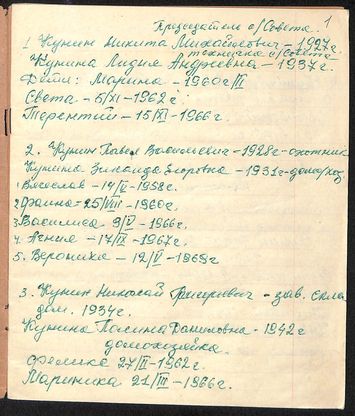 Председатель с/Совета. 1
1. Кунин Никита Михайлович - 1927г.
техничка с/Совета
Кунина Лидия Андреевна - 1937г.
Дети: Марина - 1960г/III
Света - 6/XI - 1962г.
Терентий - 15/XI - 1966г.
2. Кунин Павел Васильевич - 1928г - охотник
Кунина Зинаида Егоровна - 1931г - домохоз
1. Вячеслав - 14/V - 1958г.
2. Фаина - 25/VIII - 1960г.
3. Василиса 9/V - 1966г.
4. Агния - 17/IX - 1967г.
5. Вероника - 12/V - 1969г
3. Кунин Николай Григорьевич - зав. скла
дом. 1934г.
Кунина Полина Даниловна - 1942г
домохозяйка.
27/II - 1962г.
Мариника 21/III - 1966г.